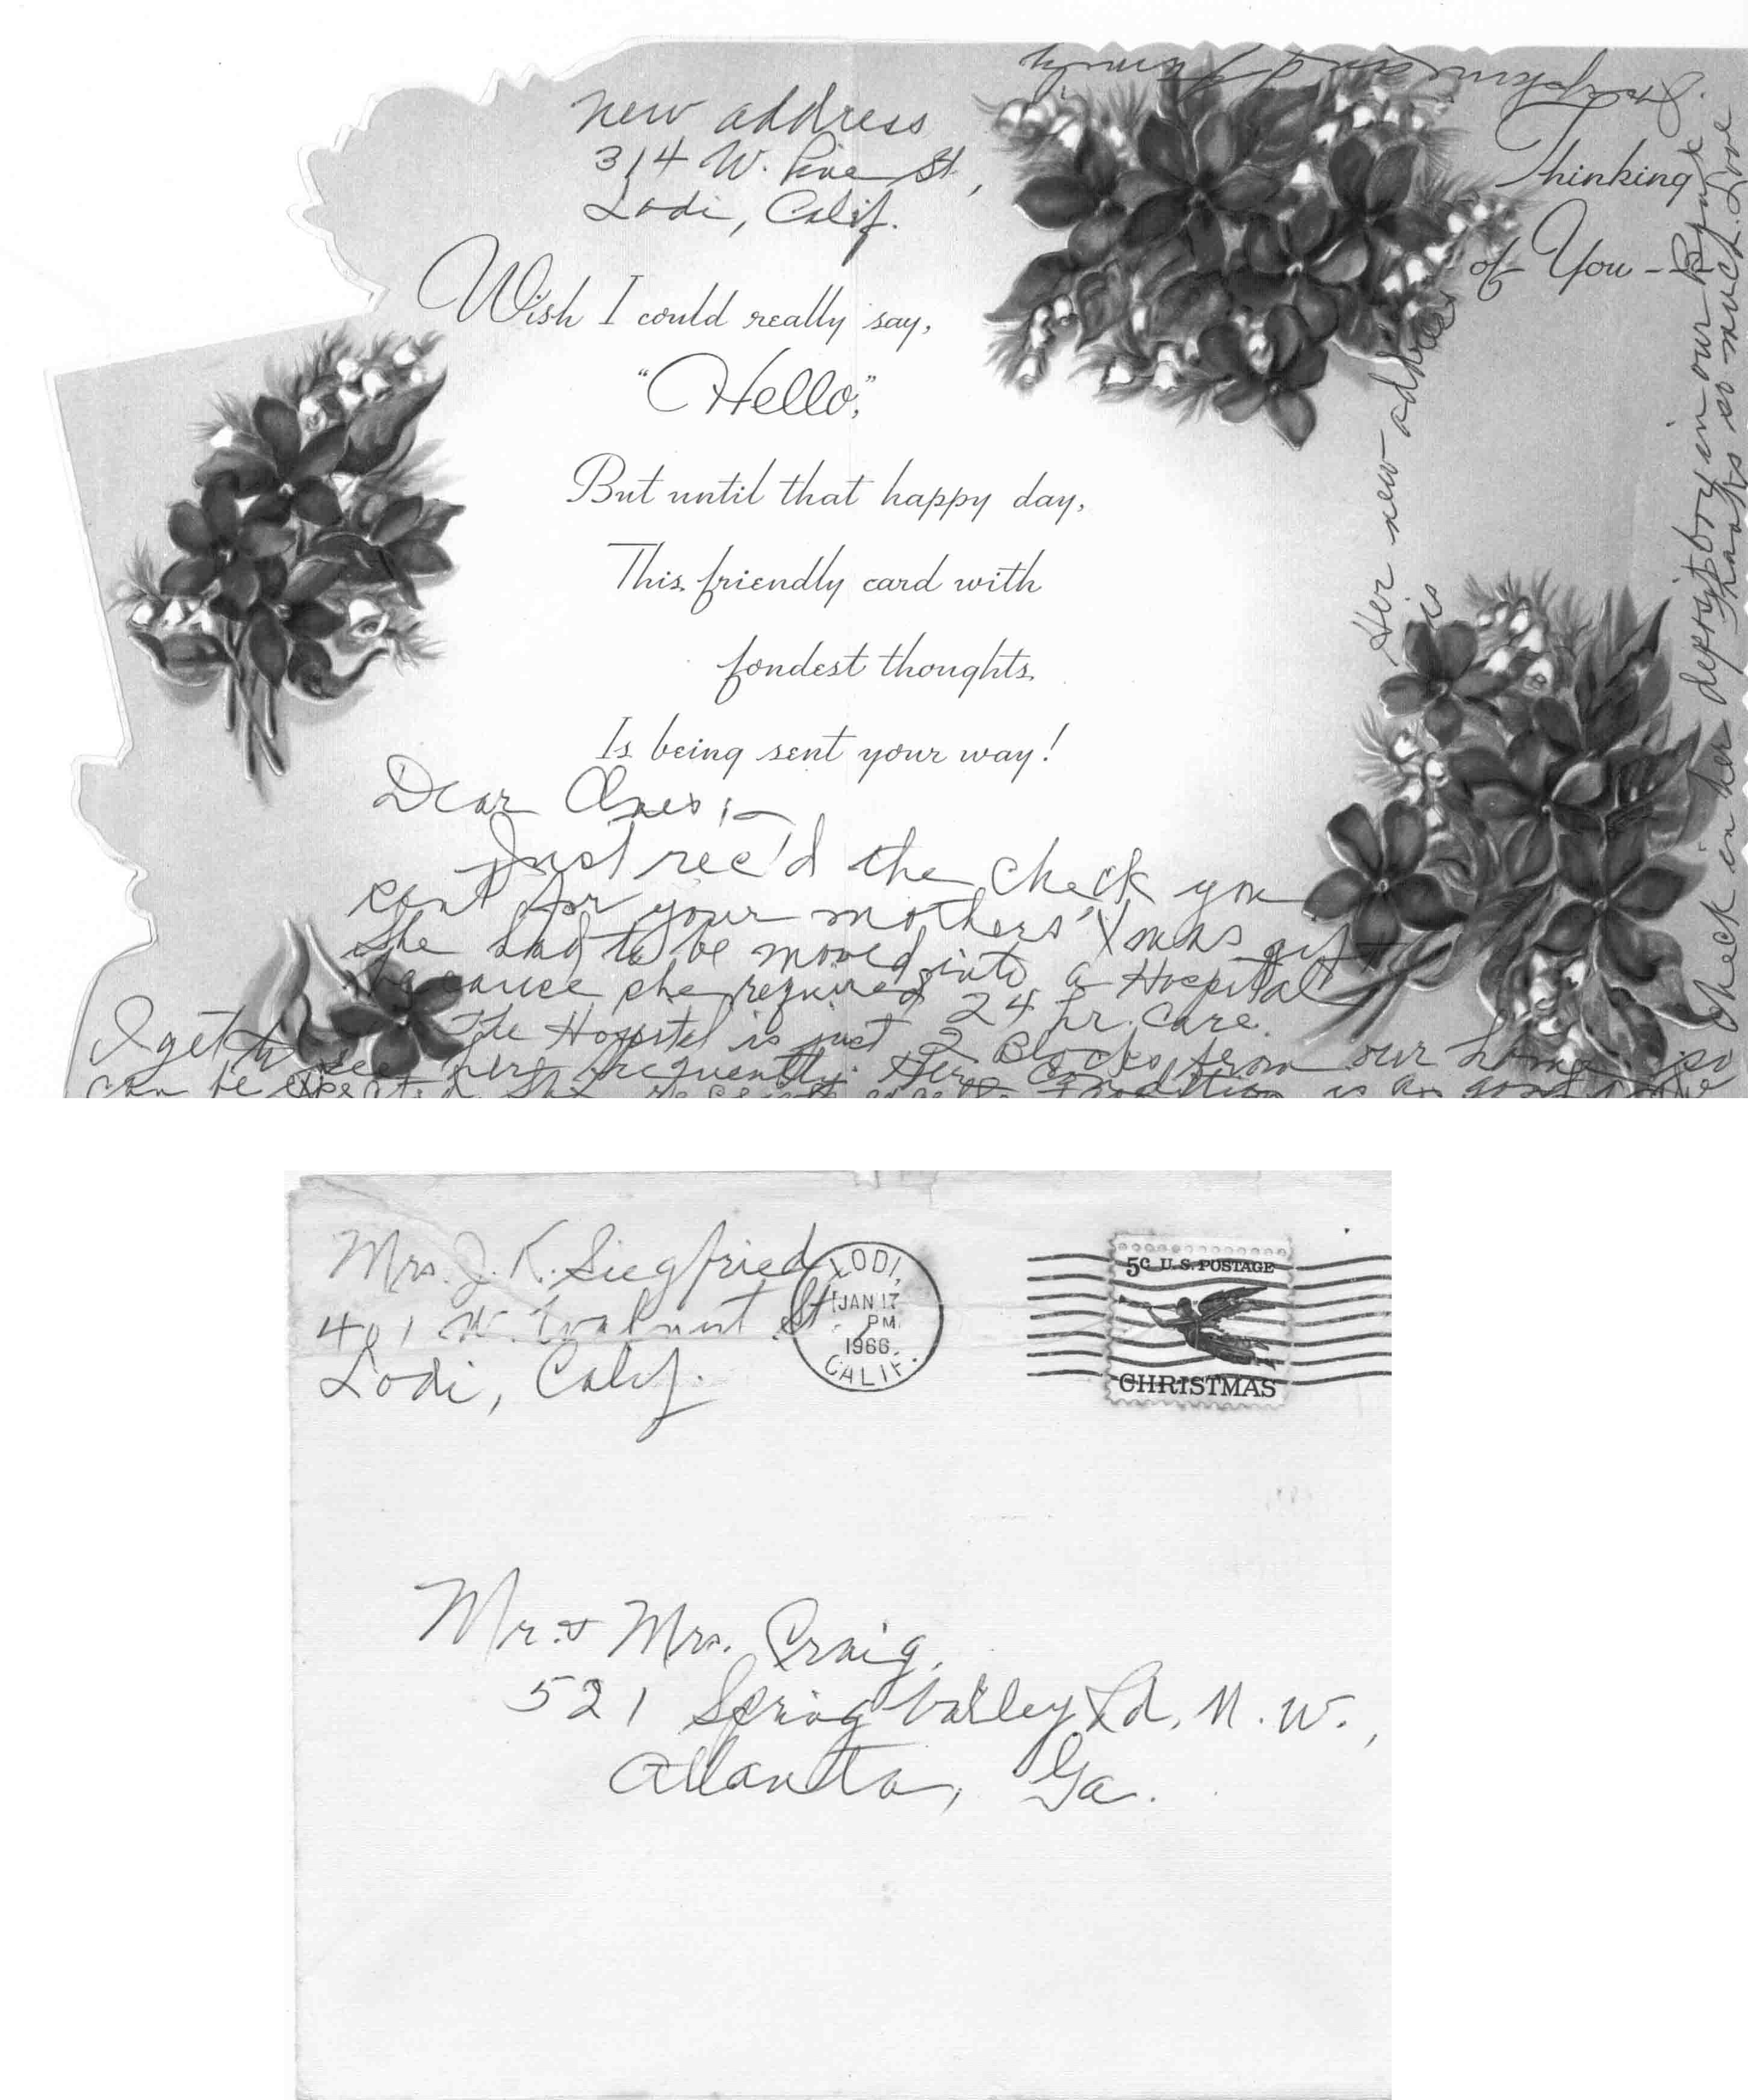 new address
314 W. Pine St,
Lodi, Calif.
Wish I could really say,
"Hello,"
But until that happy day,
This friendly card with
fondest thoughts
Is being sent your way!
Thinking
of You -
Dear Ones:-
Just rec'd the check you
sent for your mothers' Xmas gift
She had to be moved into a Hospital
because she required 24 hr. Care.
The Hospital is just 2 Blocks from our home so
I get to see her frequently. Her Condition is as good
can be
Her new address
is
check in her deposit box in our Bank
Thanks so much. Love
and Family
Mrs. J. K. Siegfried
401 W. Walnut St
Lodi, Calif.
LODI,
JAN 17
PM
1966
CALIF.
5c U.S. POSTAGE
CHRISTMAS
Mr. & Mrs. Craig,
521 Spring Valley Rd, N.W.,
Atlanta, Ga.